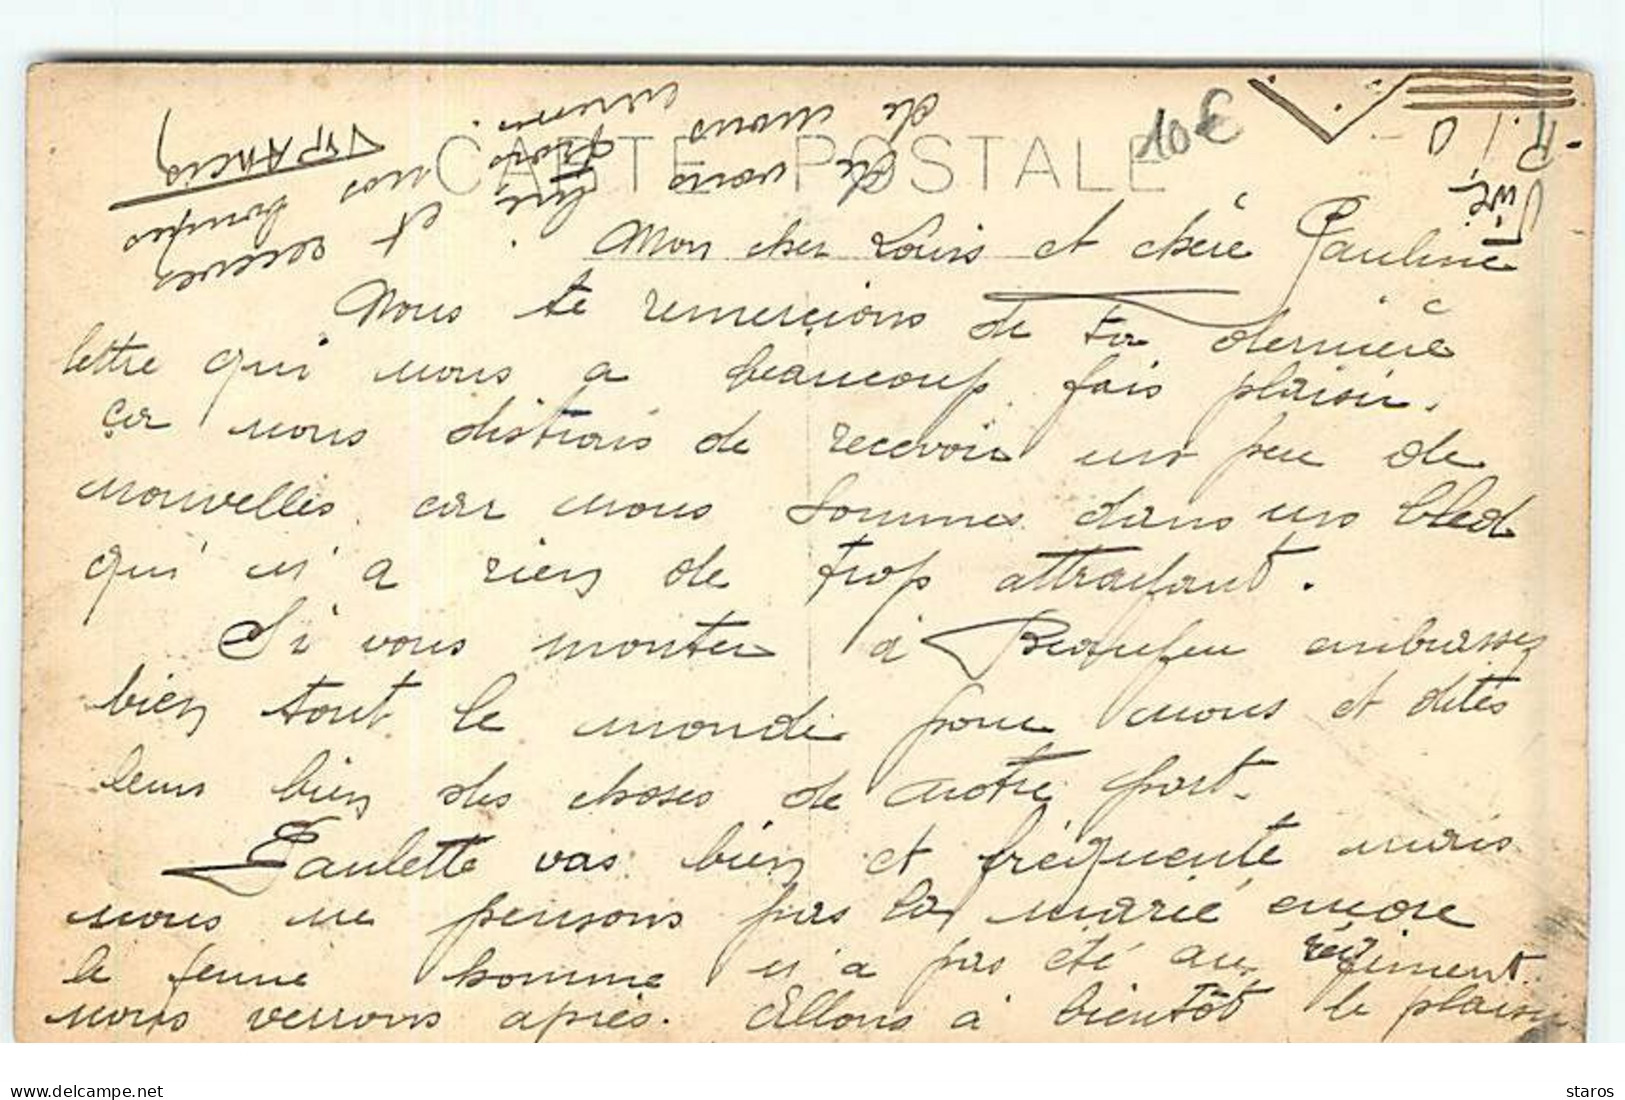 CARTE POSTALE
10€
Mon cher Louis et chère Pauline
Nous te remercions de ta dernière
lettre qui nous a beaucoup fais plaisir.
ça nous distrais de recevoir un peu de
nouvelles car nous sommes dans un bled
qui n'a rien de trop attrayant.
Si vous monter à Beaufeu embrassez
bien tout le monde pour nous et dites
leur bien des choses de notre part.
Paulette vas bien et fréquente mais
nous ne pensons pas la marié encore
le jeune homme n'a pas été au régiment.
nous verrons après. Allons à bientôt le plaisir
de vous
de nous
et recevez nos
bons
delcampe.net
staros